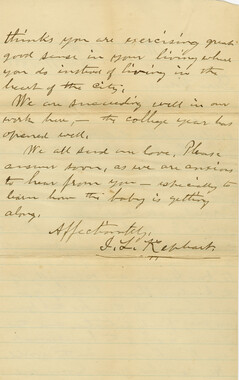 thinks you are exercising great
good sense in your living where
you do instead of living in the
heart of the city.
We are succeeding well in our
work here, — the college year has
opened well.
We all send our love. Please
answer soon, as we are anxious
to hear from you — especially to
learn how the baby is getting
along.
Affectionately,
I. L. Kephart.